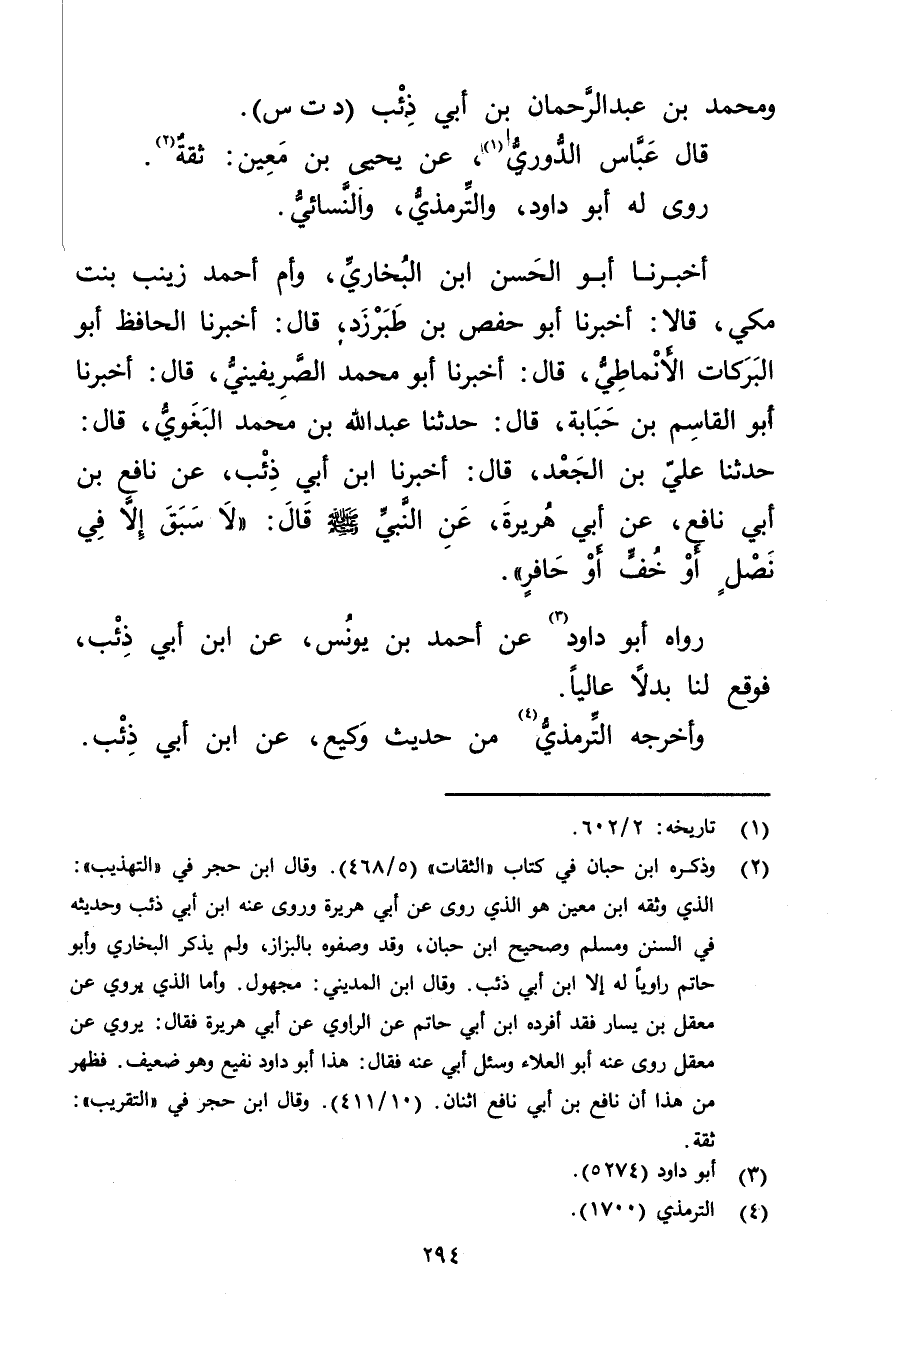 ومحمد بن عبدالرَّحمان بن أبي ذِئْب (د ت س).
قال عَبَّاس الدُّوريُّ(١)، عن يحيى بن مَعِين: ثقةٌ(٢).
روى له أبو داود، والتِّرمذيُّ، والنَّسائيُّ.
أخبرنا أبو الحَسن ابن البُخاريِّ، وأم أحمد زينب بنت
مكي، قالا: أخبرنا أبو حفص بن طَبَرْزَد، قال: أخبرنا الحافظ أبو
البَرَكات الأَنْماطِيُّ، قال: أخبرنا أبو محمد الصَّرِيفينيُّ، قال: أخبرنا
أبو القاسِم بن حَبَابة، قال: حدثنا عبدالله بن محمد البَغَويُّ، قال:
حدثنا عليّ بن الجَعْد، قال: أخبرنا ابن أبي ذِئْب، عن نافع بن
أبي نافع، عن أبي هُريرةَ، عَنِ النَّبيِّ ﷺ قَالَ: «لَا سَبَقَ إِلَّا فِي
نَصْلٍ أَوْ خُفٍّ أَوْ حَافرٍ».
رواه أبو داود(٣) عن أحمد بن يونُس، عن ابن أبي ذِئْب،
فوقع لنا بدلاً عالياً.
وأخرجه التِّرمذيُّ(٤) من حديث وَكيع، عن ابن أبي ذِئْب.
(١) تاريخه: ٦٠٢/٢.
(٢) وذكره ابن حبان في كتاب «الثقات» (٤٦٨/٥). وقال ابن حجر في «التهذيب»:
الذي وثقه ابن معين هو الذي روى عن أبي هريرة وروى عنه ابن أبي ذئب وحديثه
في السنن ومسلم وصحيح ابن حبان، وقد وصفوه بالبزاز، ولم يذكر البخاري وأبو
حاتم راوياً له إلا ابن أبي ذئب. وقال ابن المديني: مجهول. وأما الذي يروي عن
معقل بن يسار فقد أفرده ابن أبي حاتم عن الراوي عن أبي هريرة فقال: يروي عن
معقل روى عنه أبو العلاء وسئل أبي عنه فقال: هذا أبو داود نفيع وهو ضعيف. فظهر
من هذا أن نافع بن أبي نافع اثنان. (٤١١/١٠). وقال ابن حجر في «التقريب»:
ثقة.
(٣) أبو داود (٥٢٧٤).
(٤) الترمذي (١٧٠٠).
٢٩٤